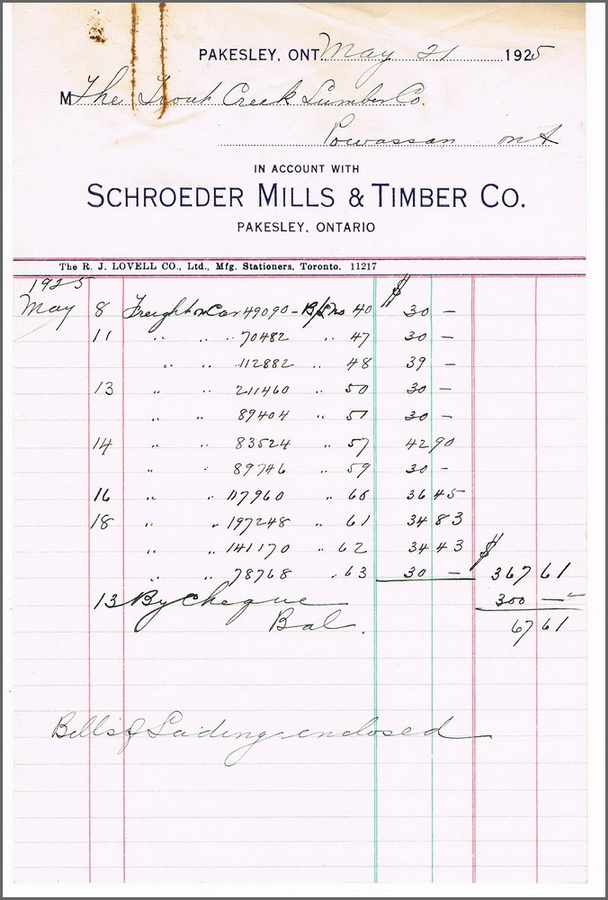 PAKESLEY, ONT. May 21 1925
M The Trout Creek Lumber Co.
Powassan Ont
IN ACCOUNT WITH
SCHROEDER MILLS & TIMBER CO.
PAKESLEY, ONTARIO
The R. J. LOVELL CO., Ltd., Mfg. Stationers, Toronto. 11217
1925 $
May 8 Freight on Car 49090 - B/L no 40 30 —
11 " " " 70482 " 47 30 —
" " 112882 " 48 39 —
13 " " 211460 " 50 30 —
" " 89404 " 51 30 —
14 " " 83524 " 57 42 90
" " 89746 " 59 30 -
16 " " 117960 " 60 36 45
18 " " 197248 " 61 34 83
" " 141170 " 62 34 43 $
" " 78768 " 63 30 — 367 61
13 By Cheque 300 —
Bal. 67 61
Bills of Lading enclosed